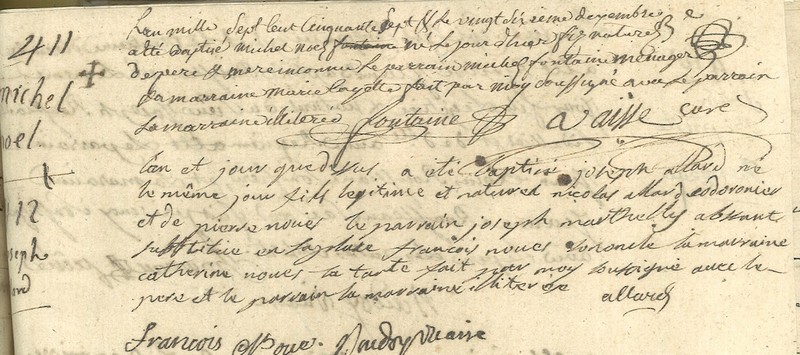 411
michel
noel
Lan mille Sept Cent Cinquante Sept & le vingt sixieme decembre
a été Baptisé Michel Noel fontaine né le jour d'hier fils naturel
de pere & mere inconnu le parrain Michel fontaine menager
La marraine marie fait par moy soussigné avec le parrain
La marraine illiterée fontaine Vaisse curé
12
joseph
allard
L'an et jour que dessus a été baptisé joseph allard né
le même jour fils legitime et naturel nicolas allard cordonnier
et de noues le parrain joseph absant
substitué en sa place françois noues son oncle la marraine
catherine noues sa tante fait par moy soussigné avec le
pere et le parrain la marraine illiterée allard
francois Noue vicaire